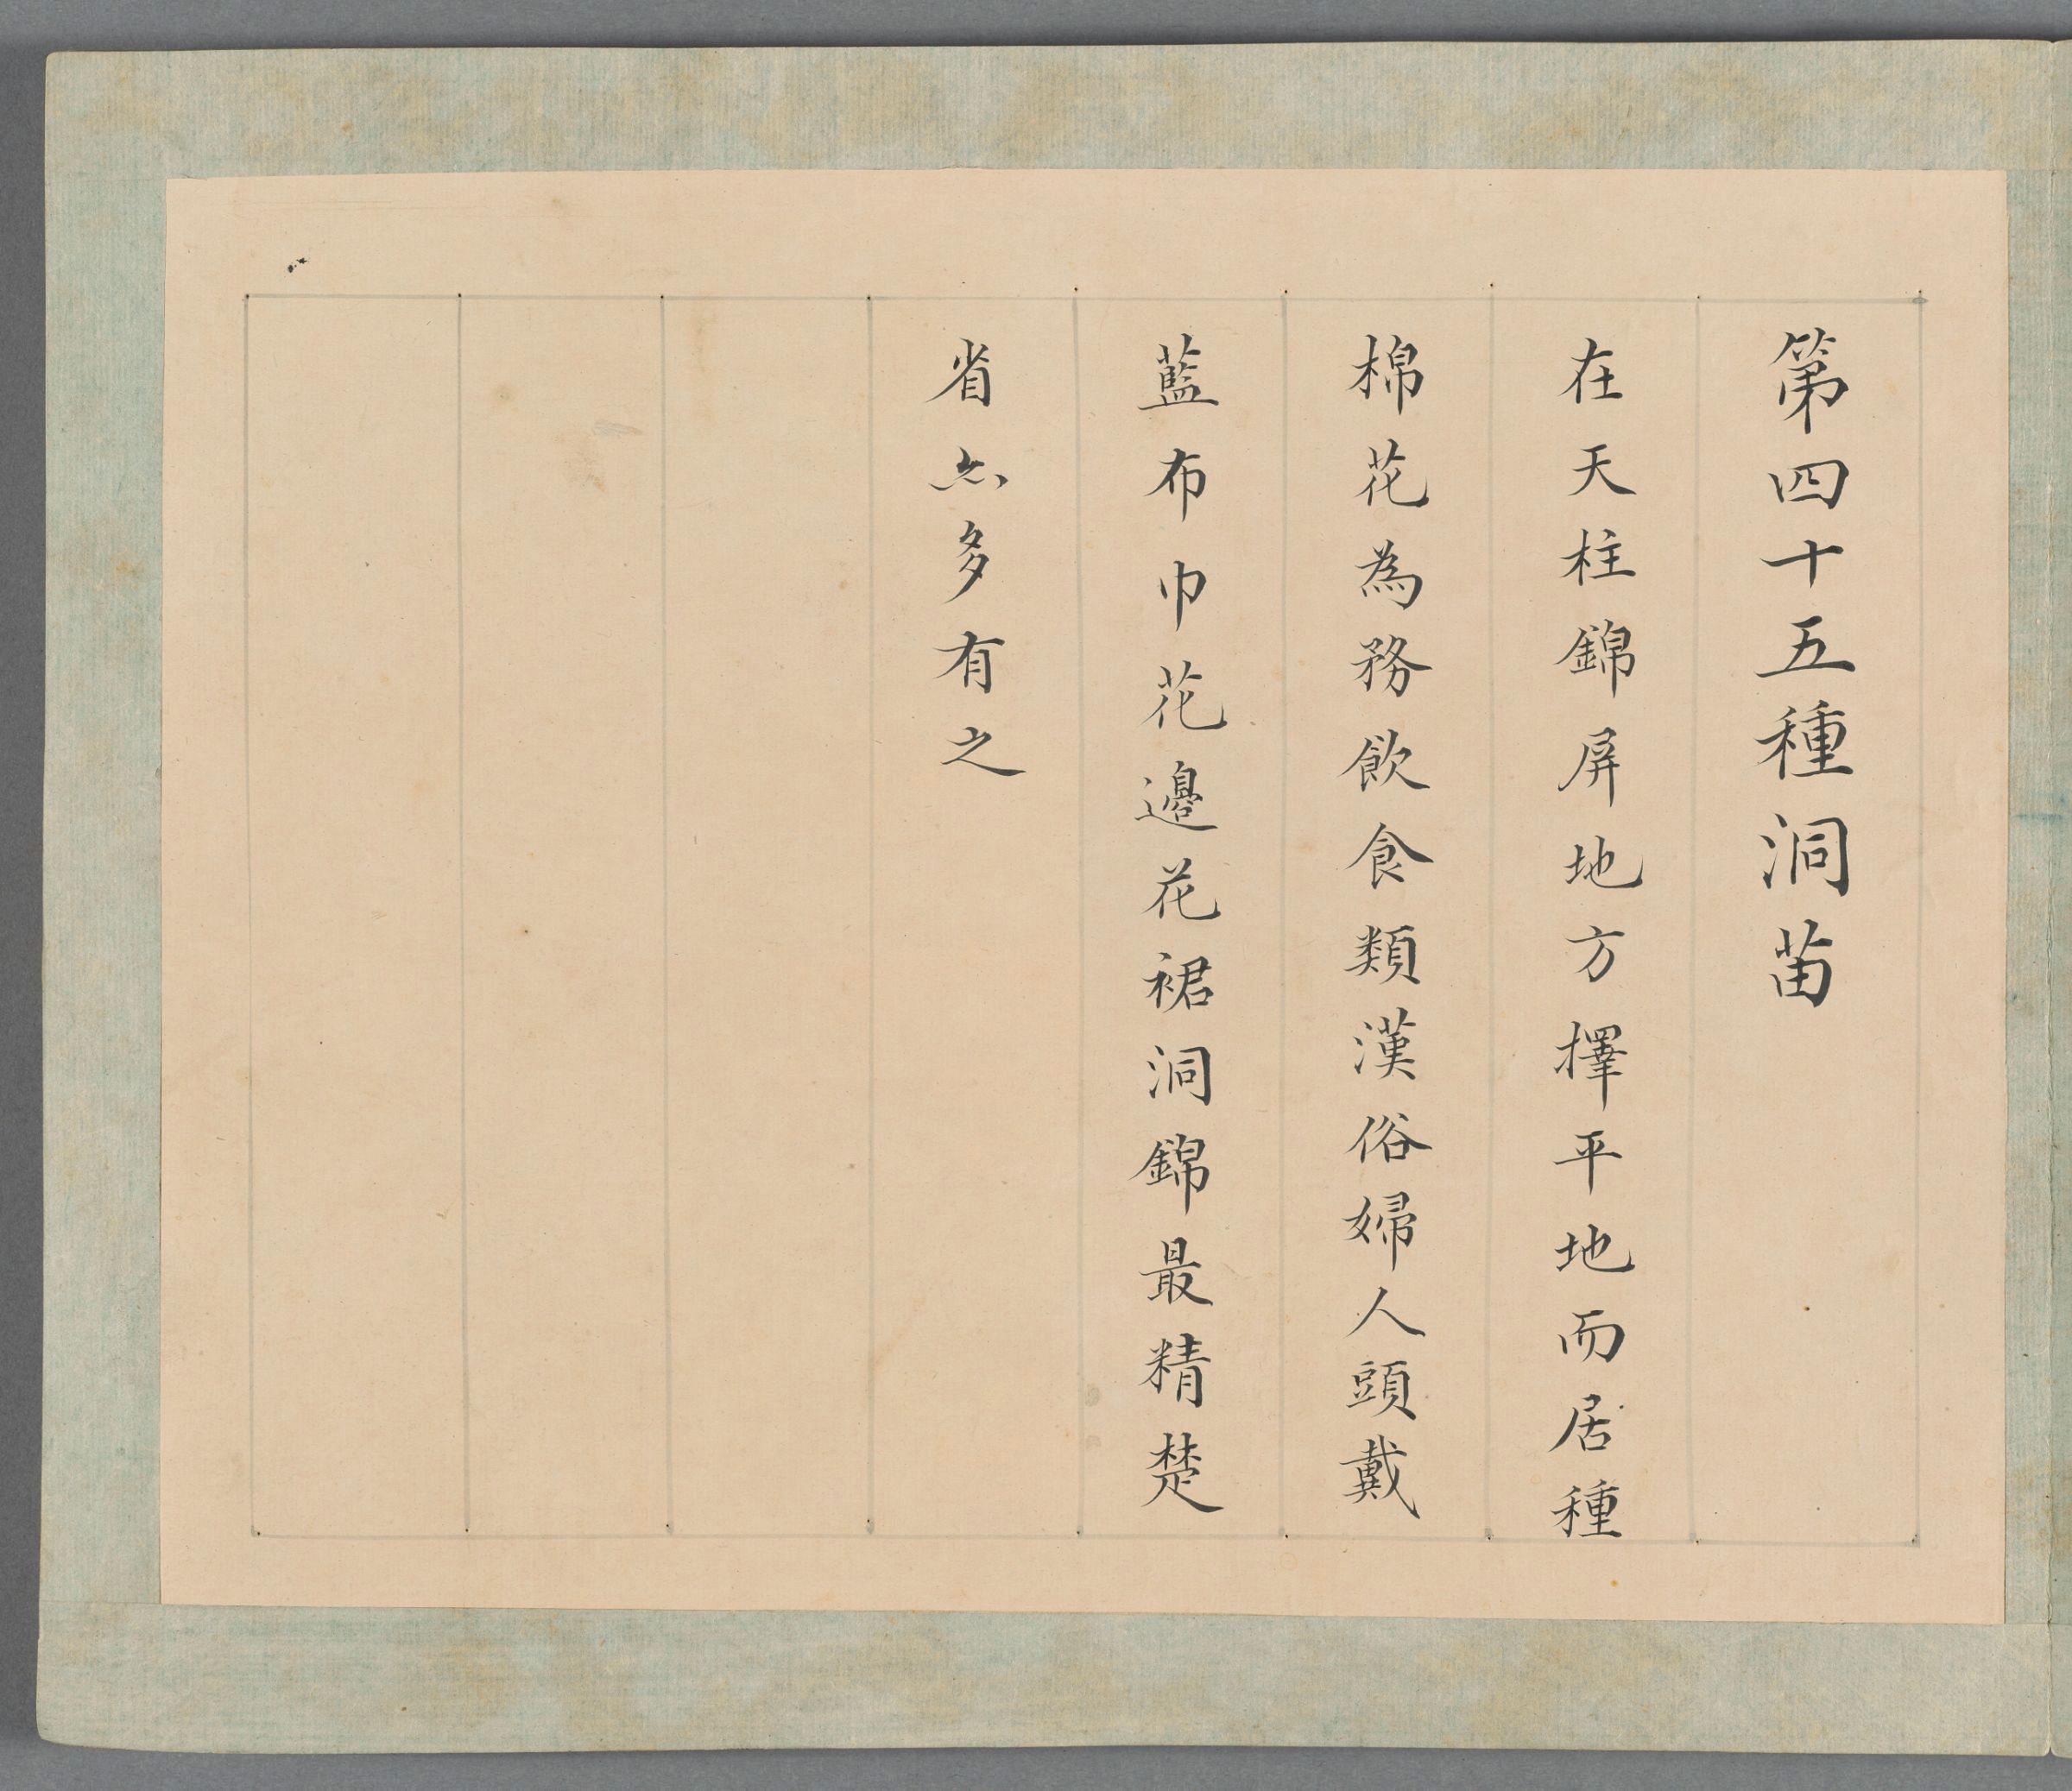 第四十五種洞苗
在天柱錦屏地方擇平地而居種
棉花為務飲食類漢俗婦人頭戴
藍布巾花邊花裙洞錦最精楚
省亦多有之